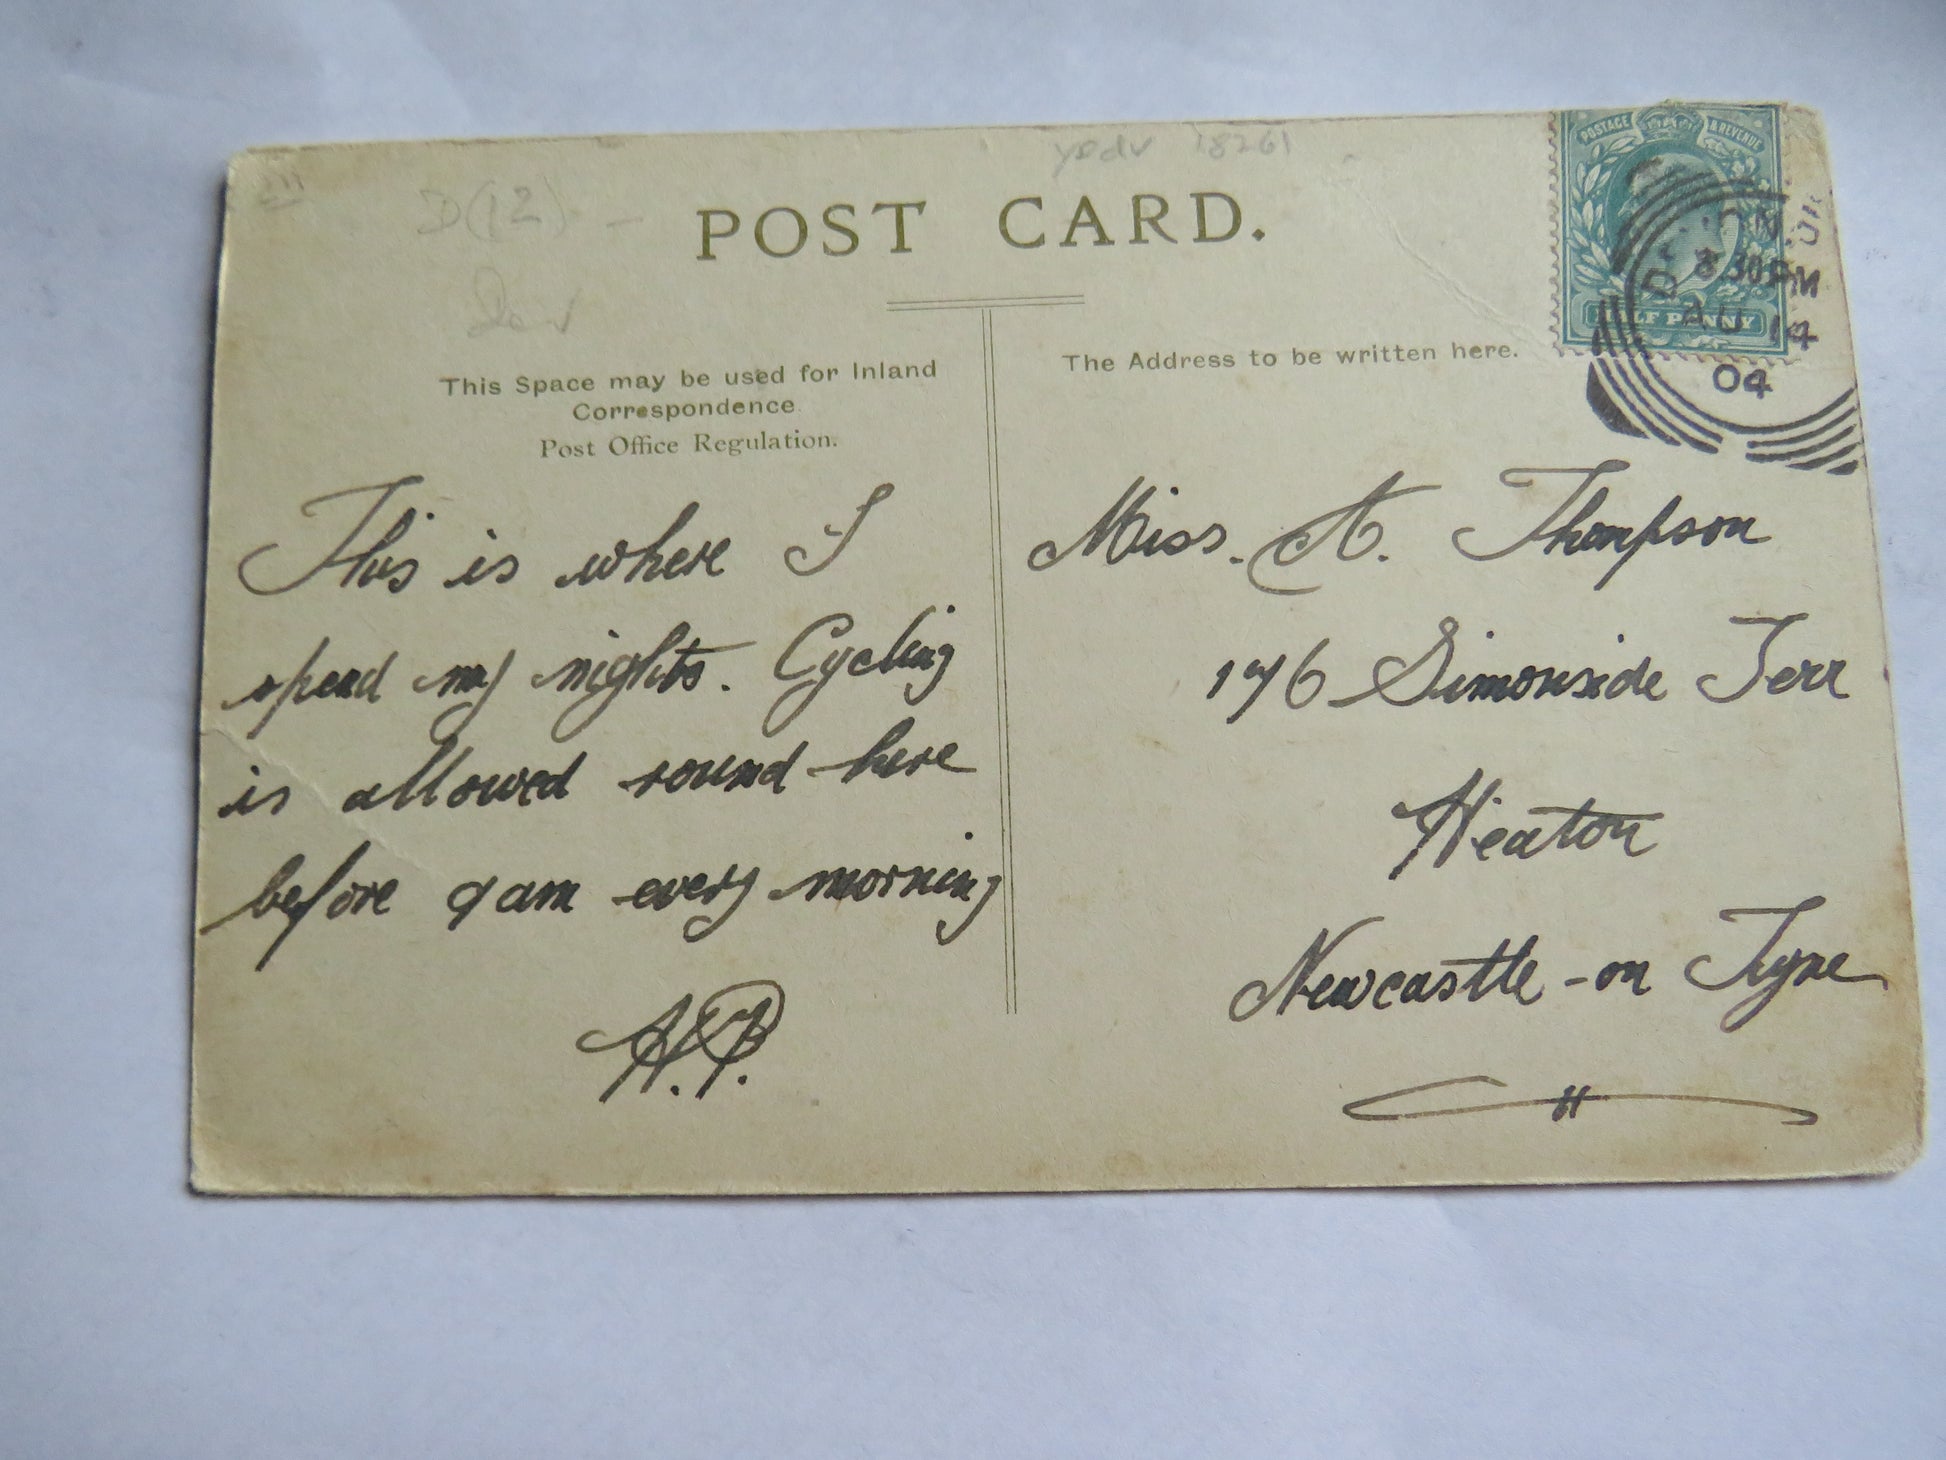 yedv 18261
D(12)
POST CARD.
POSTAGE & REVENUE
HALF PENNY
8.30PM
AU 14
04
This Space may be used for Inland
Correspondence.
Post Office Regulation.
The Address to be written here.
This is where I
spend my nights. Cycling
is allowed round here
before 9am every morning
H.P.
Miss. A. Thompson
176 Simonside Terr
Heaton
Newcastle-on Tyne